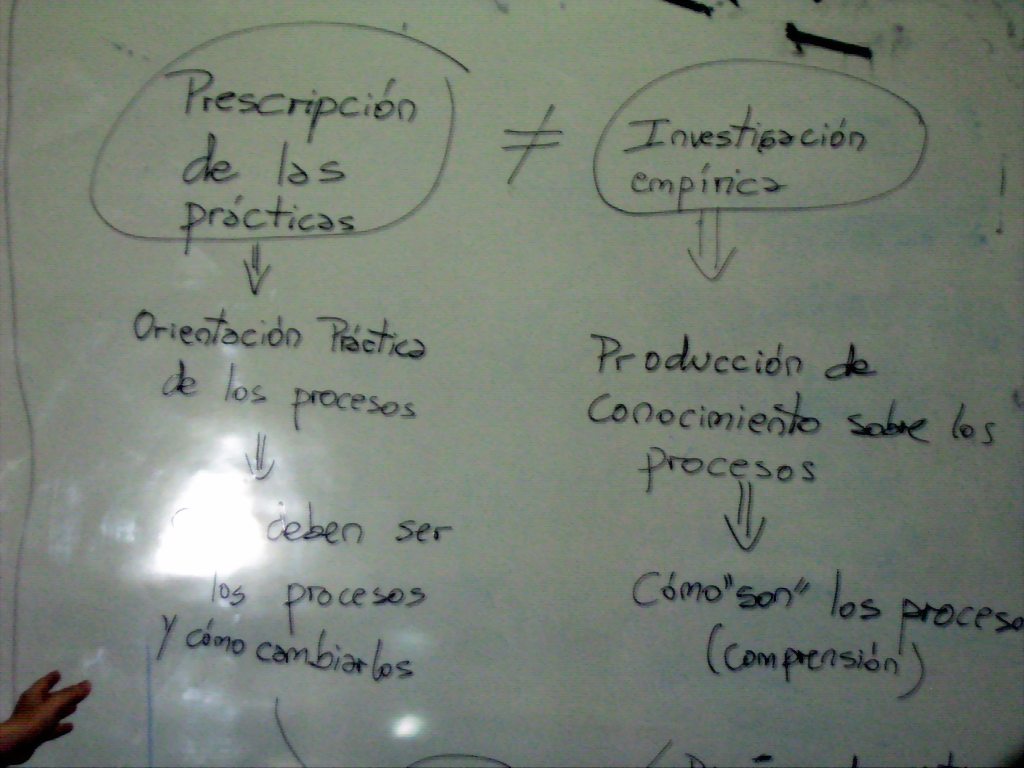 Prescripción
de las
prácticas
≠
Investigación
empírica
Orientación Práctica
de los procesos
deben ser
los procesos
y cómo cambiarlos
Producción de
conocimiento sobre los
procesos
Cómo "son" los proceso
(comprensión)